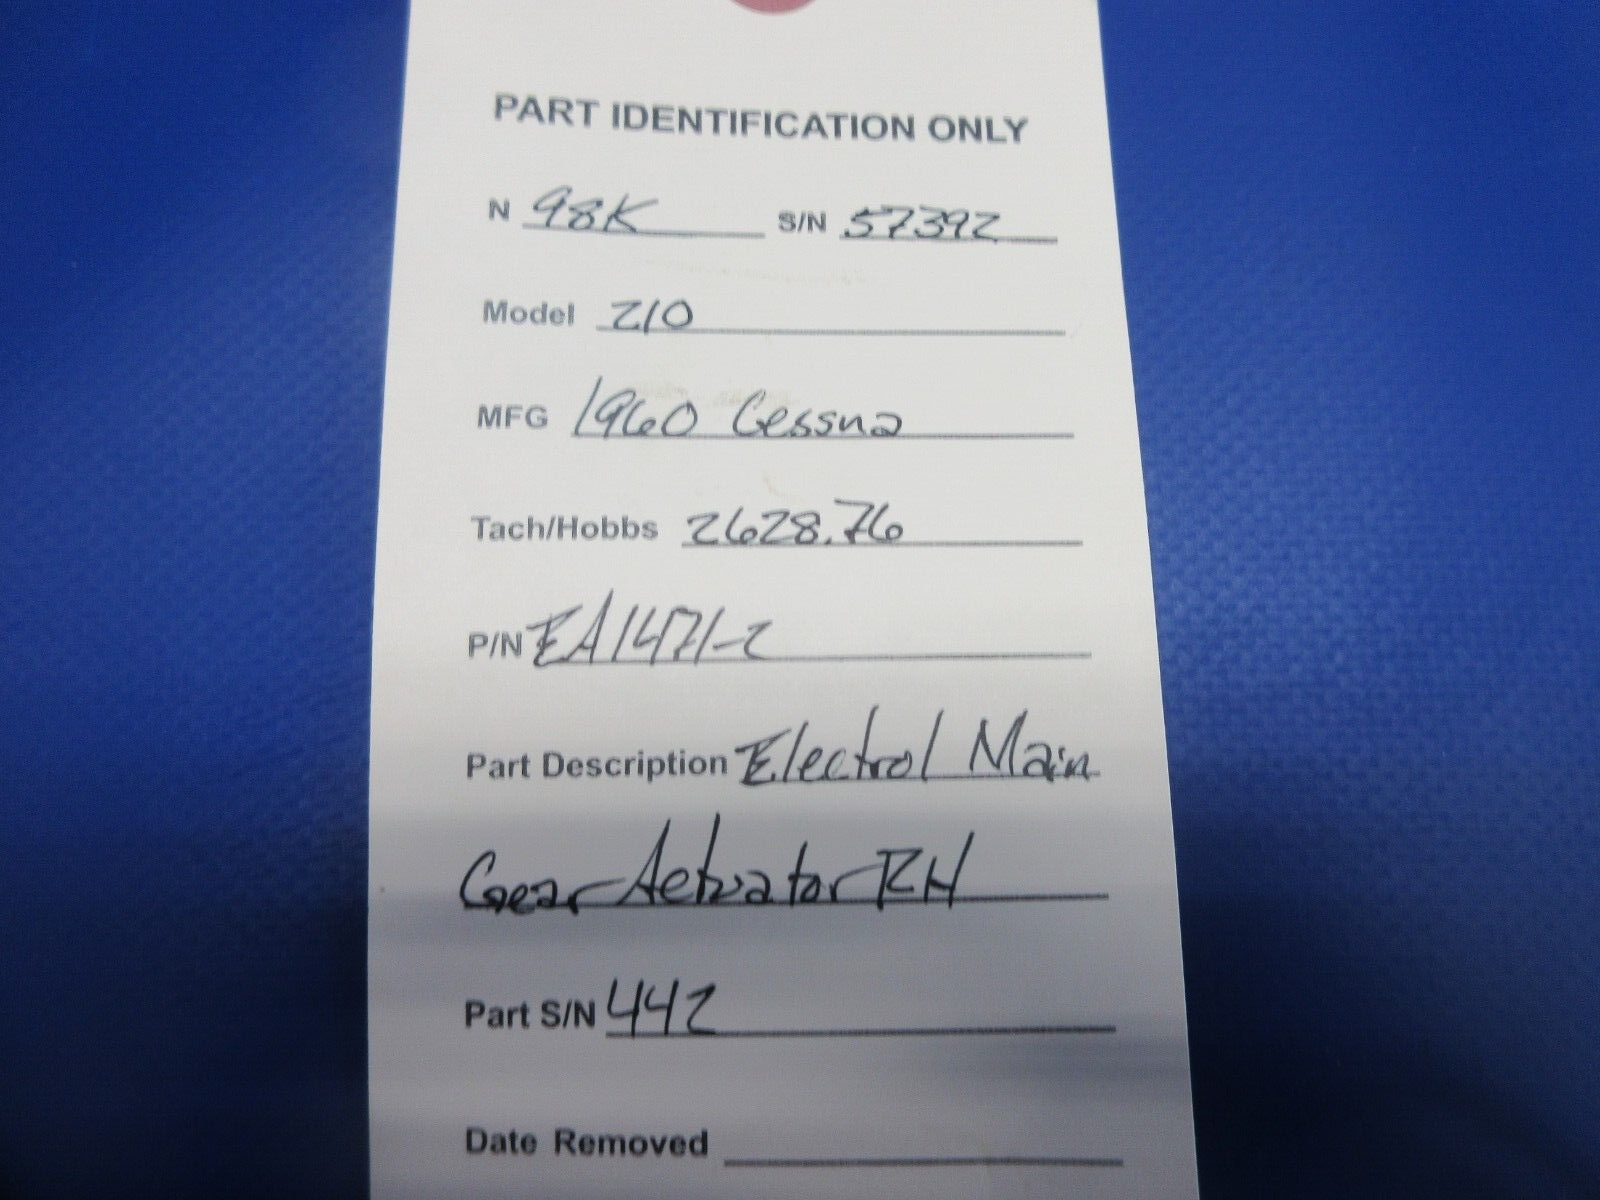 PART IDENTIFICATION ONLY
N 98K S/N 57392
Model 210
MFG 1960 Cessna
Tach/Hobbs 2628.76
P/N EA1471-2
Part Description Electrol Main
Gear Actuator RH
Part S/N 442
Date Removed